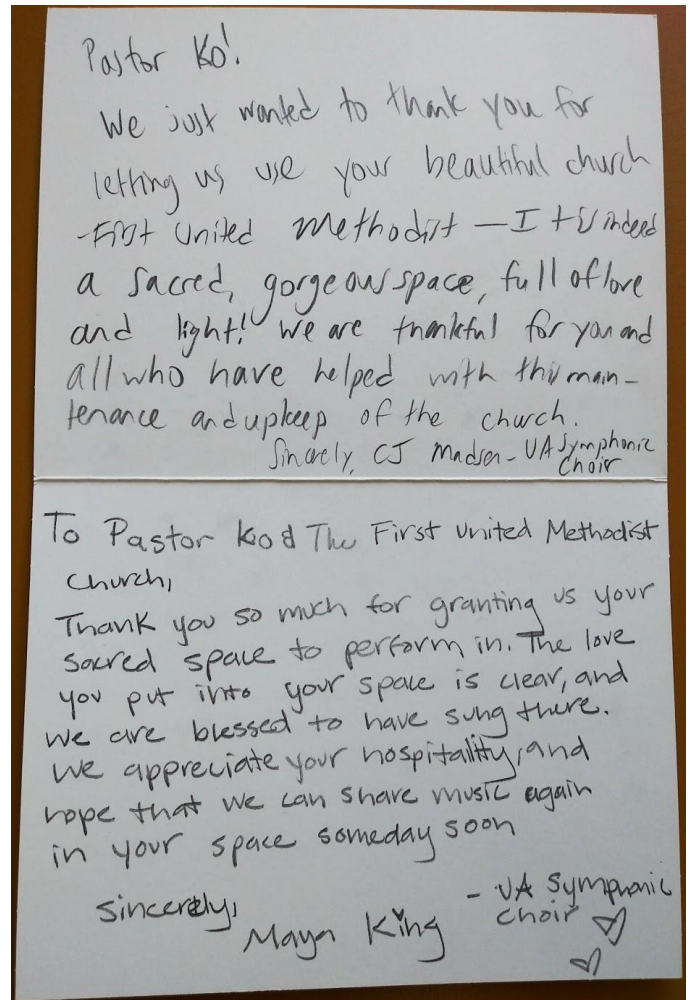 Pastor Ko!
We just wanted to thank you for
letting us use your beautiful church
-First United Methodist — It is indeed
a sacred, gorgeous space, full of love
and light! We are thankful for you and
all who have helped with this main-
tenance and upkeep of the church.
Sincerely, CJ Madsen - UA Symphonic
Choir
To Pastor Ko & The First United Methodist
Church,
Thank you so much for granting us your
sacred space to perform in. The love
you put into your space is clear, and
we are blessed to have sung there.
We appreciate your hospitality, and
hope that we can share music again
in your space someday soon
Sincerely,
Maya King
- UA Symphonic
Choir ♡
♡